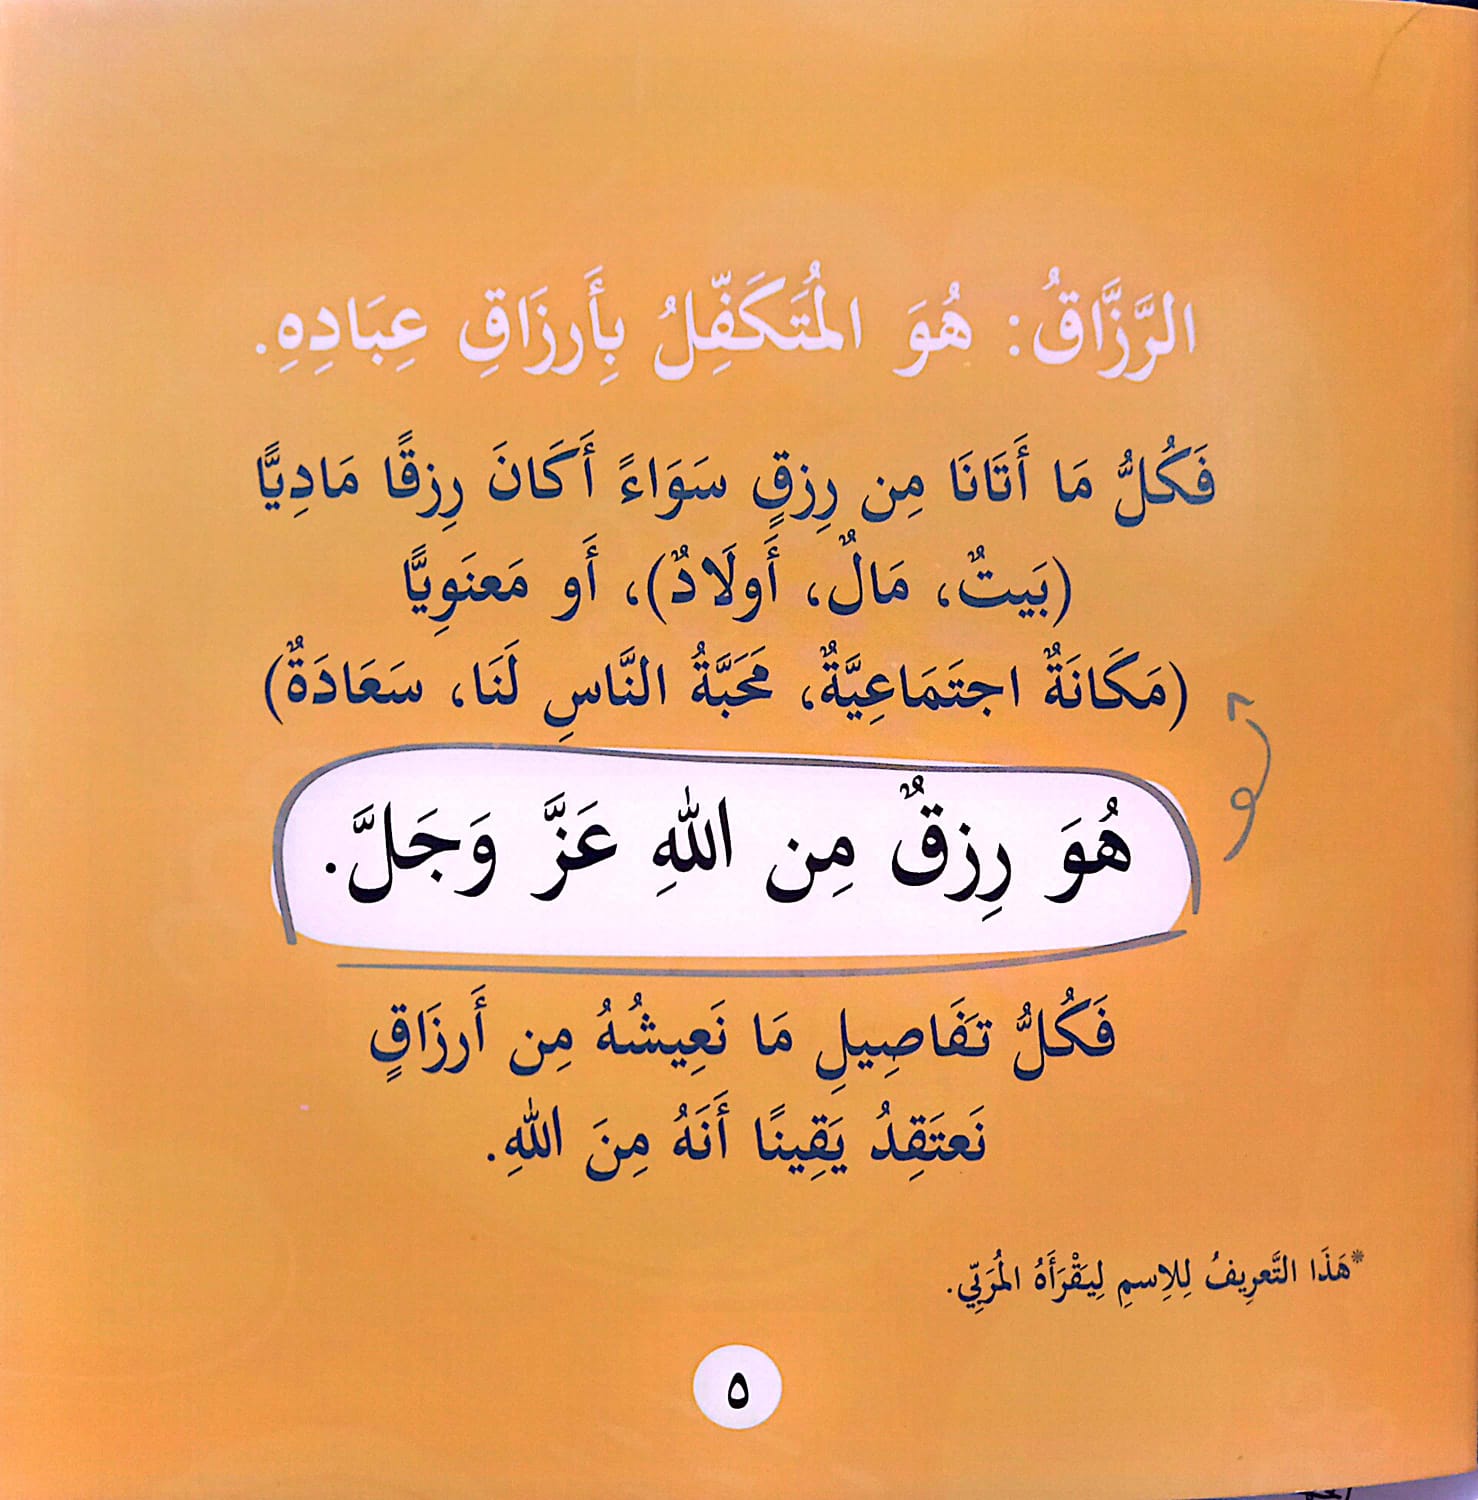 الرَّزَّاقُ: هُوَ المُتَكَفِّلُ بِأَرزَاقِ عِبَادِهِ.
فَكُلُّ مَا أَتَانَا مِن رِزقٍ سَوَاءً أَكَانَ رِزقًا مَادِيًّا
(بَيتٌ، مَالٌ، أَولَادٌ)، أَو مَعنَوِيًّا
(مَكَانَةٌ اجتَمَاعِيَّةٌ، مَحَبَّةُ النَّاسِ لَنَا، سَعَادَةٌ)
هُوَ رِزقٌ مِن اللهِ عَزَّ وَجَلَّ.
فَكُلُّ تَفَاصِيلِ مَا نَعِيشُهُ مِن أَرزَاقٍ
نَعتَقِدُ يَقِينًا أَنَهُ مِنَ اللهِ.
*هَذَا التَّعرِيفُ لِلِاسمِ لِيَقْرَأَهُ المُرَبِّي.
٥